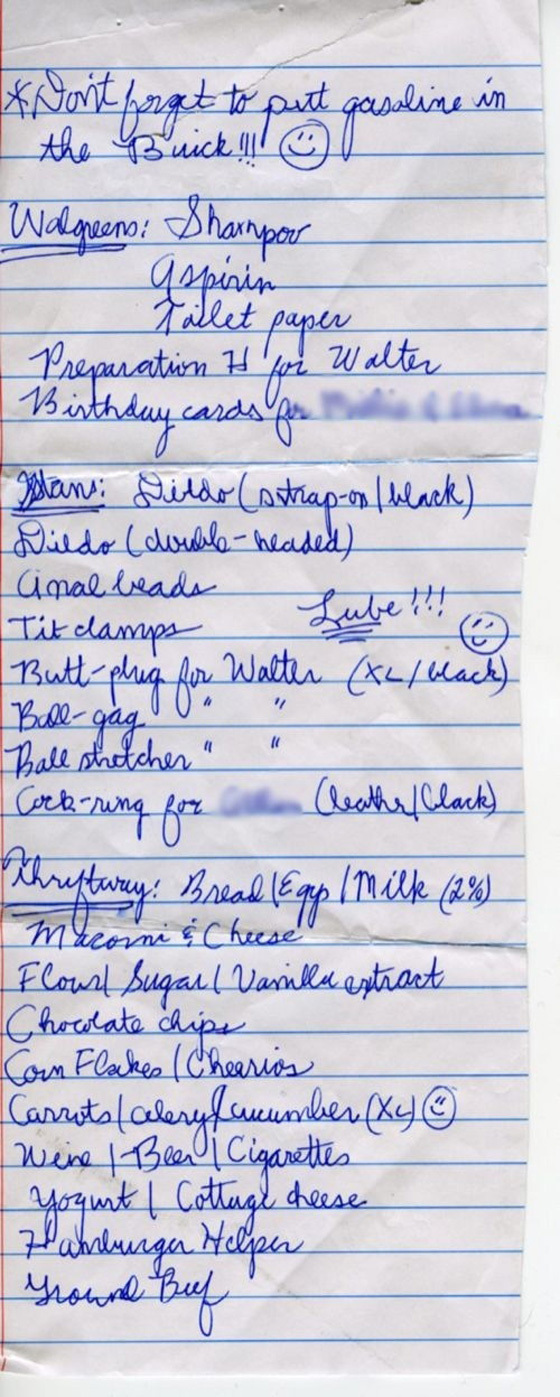 *Don't forget to putt gasoline in
the Buick!!!
Walgreens: Shampoo
Aspirin
Toilet paper
Preparation H for Walter
Birthday cards for
Stans: Dildo (strap-on/black)
Dildo (double-headed)
Anal beads
Tit clamps
Lube!!!
Butt-plug for Walter (XL/black)
Ball-gag " "
Ball stretcher " "
Cock-ring for (leather/black)
Thriftway: Bread/Egg/Milk (2%)
Macorni & Cheese
Flour/Sugar/Vanilla extract
Chocolate chips
Corn Flakes/Chearios
Carrots/celery/cucumber (XL)
Wine/Beer/Cigarettes
Yogurt/Cottage cheese
Hamburger Helper
Ground Beef